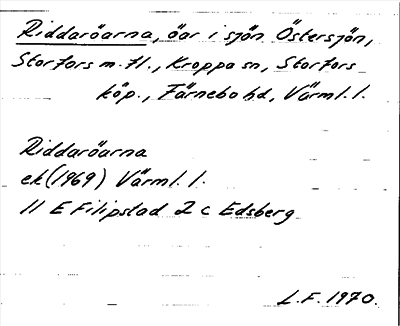 Riddaröarna, öar i sjön Östersjön,
Storfors m.fl., Kroppa sn, Storfors
köp., Färnebo hd, Värml. l.
Riddaröarna
ek (1969) Värml. l.
11 E Filipstad 2 c Edsberg
L.F. 1970.